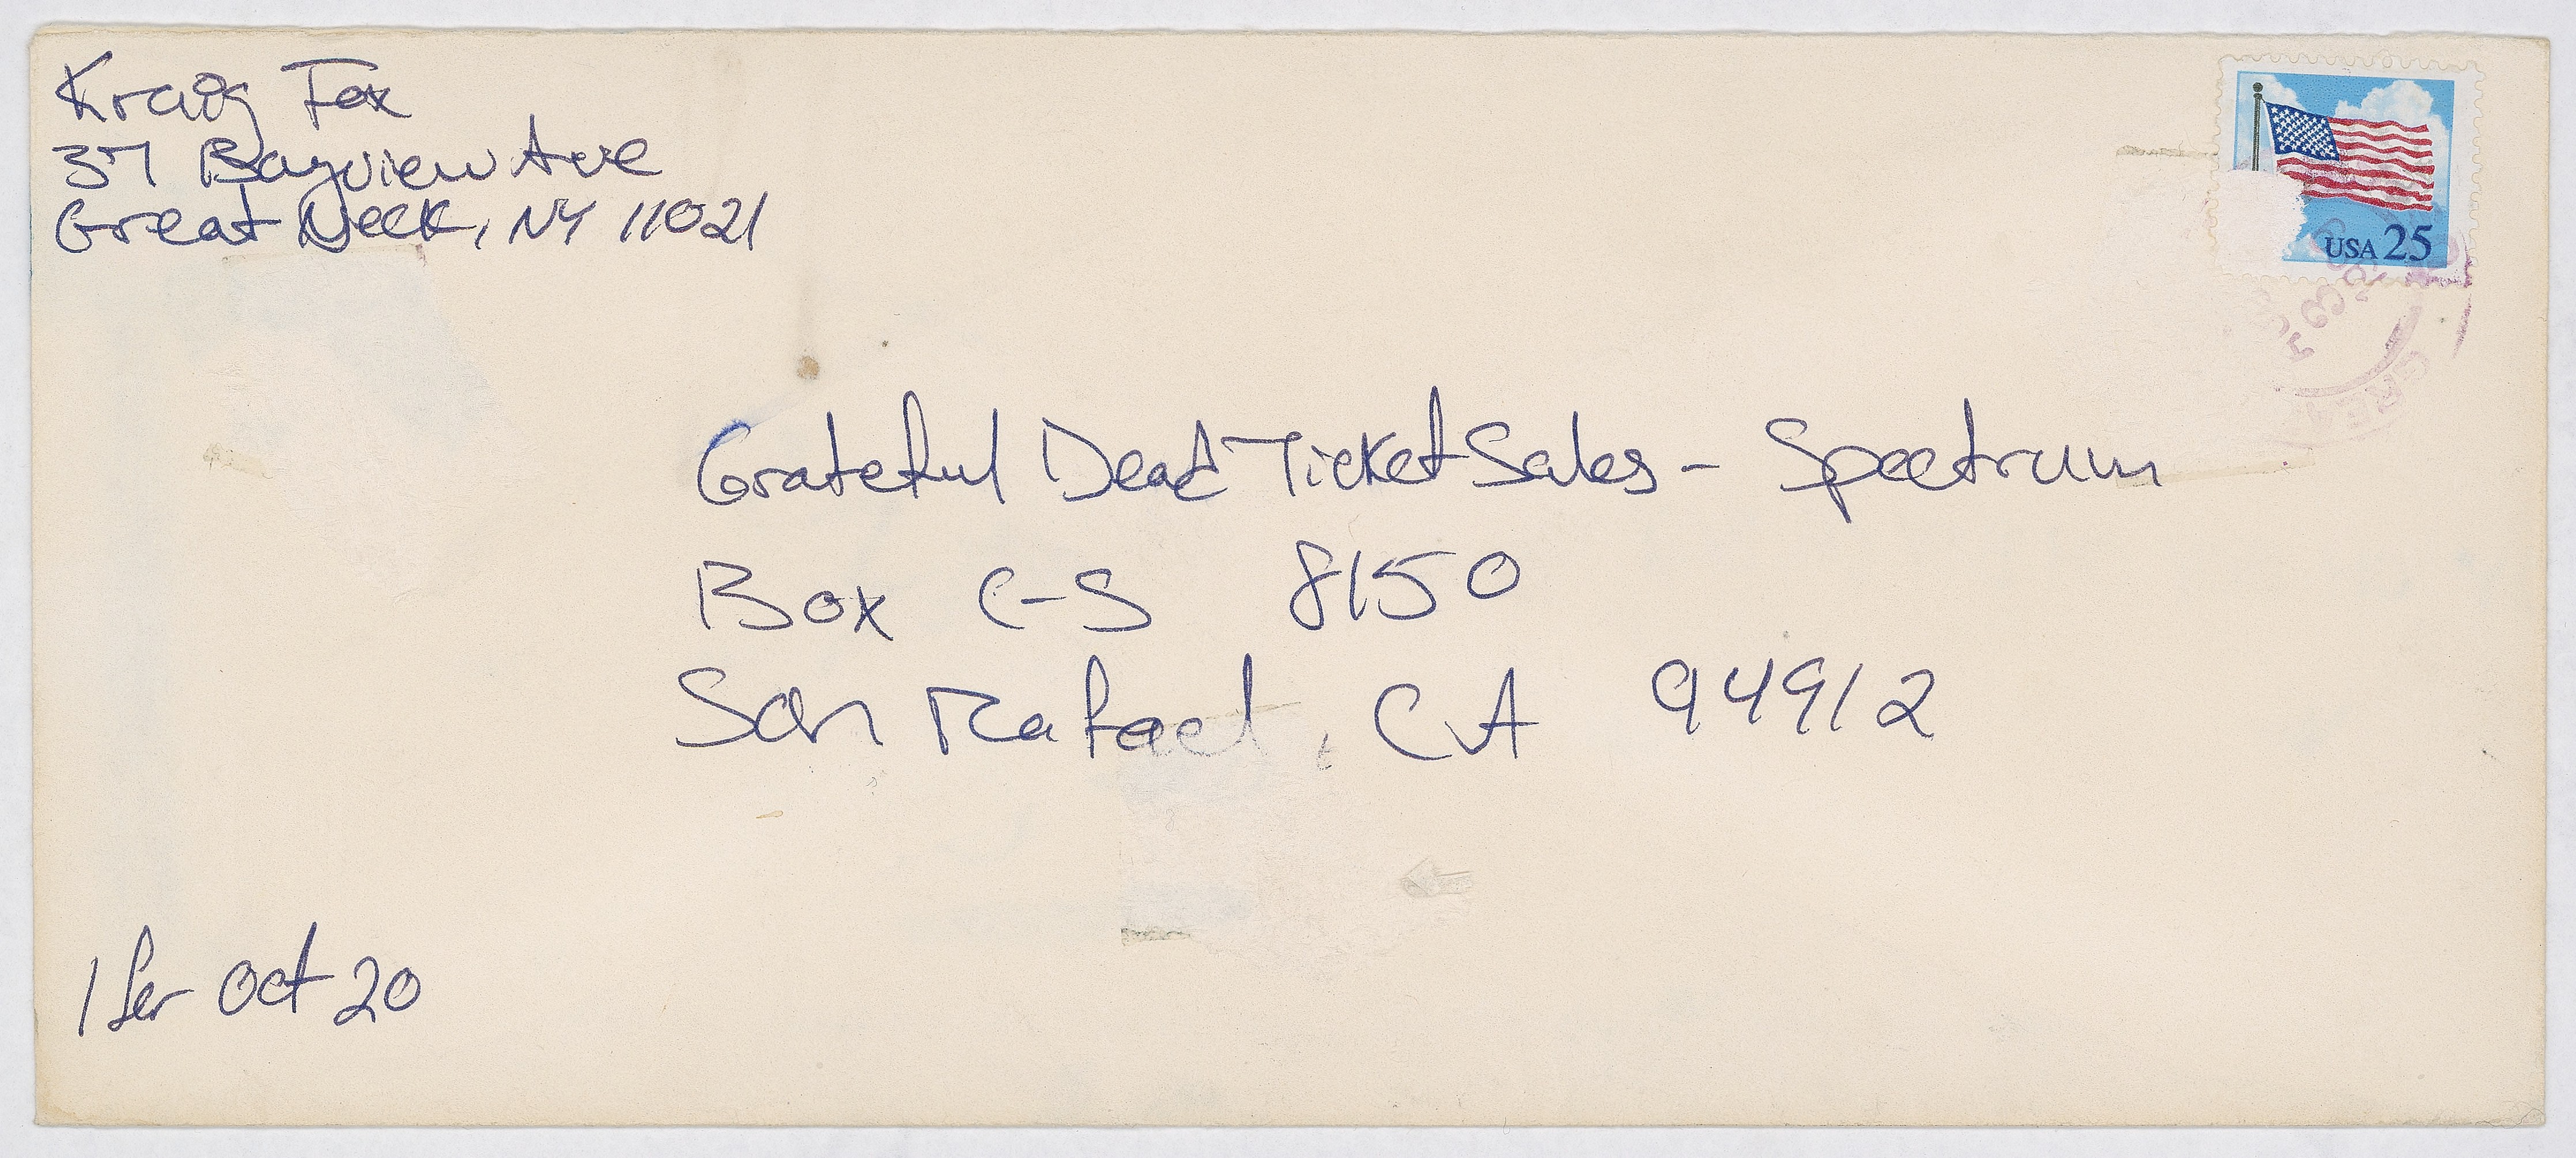 Kraig Fox
37 Bayview Ave
Great Neck, NY 11021
USA 25
Grateful Dead Ticket Sales - Spectrum
Box C-S 8150
San Rafael, CA 94912
1 for Oct 20